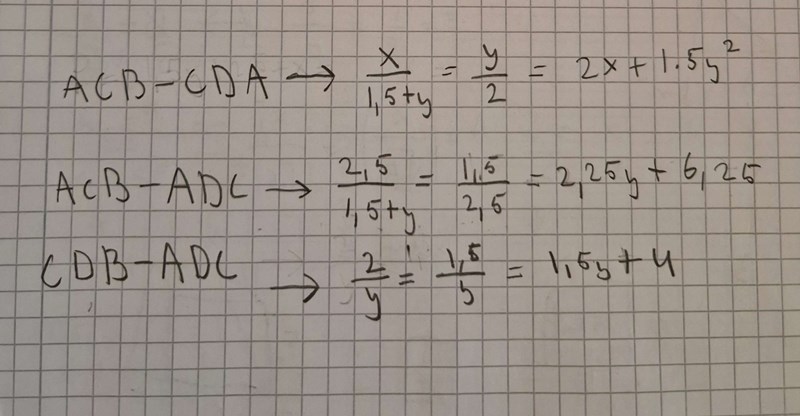 ACB - CDA → x/(1,5+y) = y/2 = 2x + 1.5y²
ACB - ADC → 2,5/(1,5+y) = 1,5/2,5 = 2,25y + 6,25
CDB - ADC → 2/y = 1,5/y = 1,5y + 4